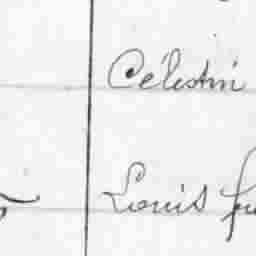 Célestin
Louis